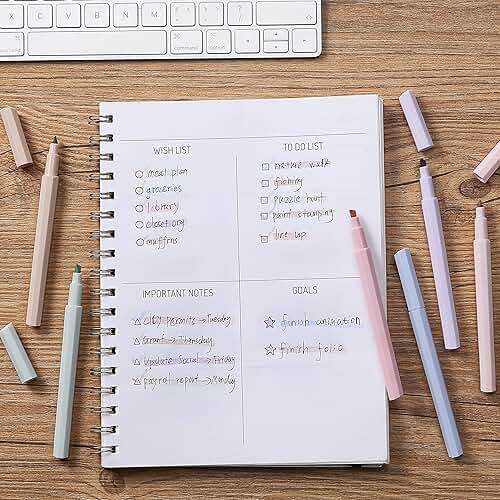 Z X C V B N M < >
command option
WISH LIST
meal plan
groceries
library
closet org
muffins
TO DO LIST
nature walk
fishing
puzzle hunt
paint stamping
line up
IMPORTANT NOTES
city permits → Tuesday
→ Thursday
update social → Friday
payroll report → Monday
GOALS
finish animation
finish folio